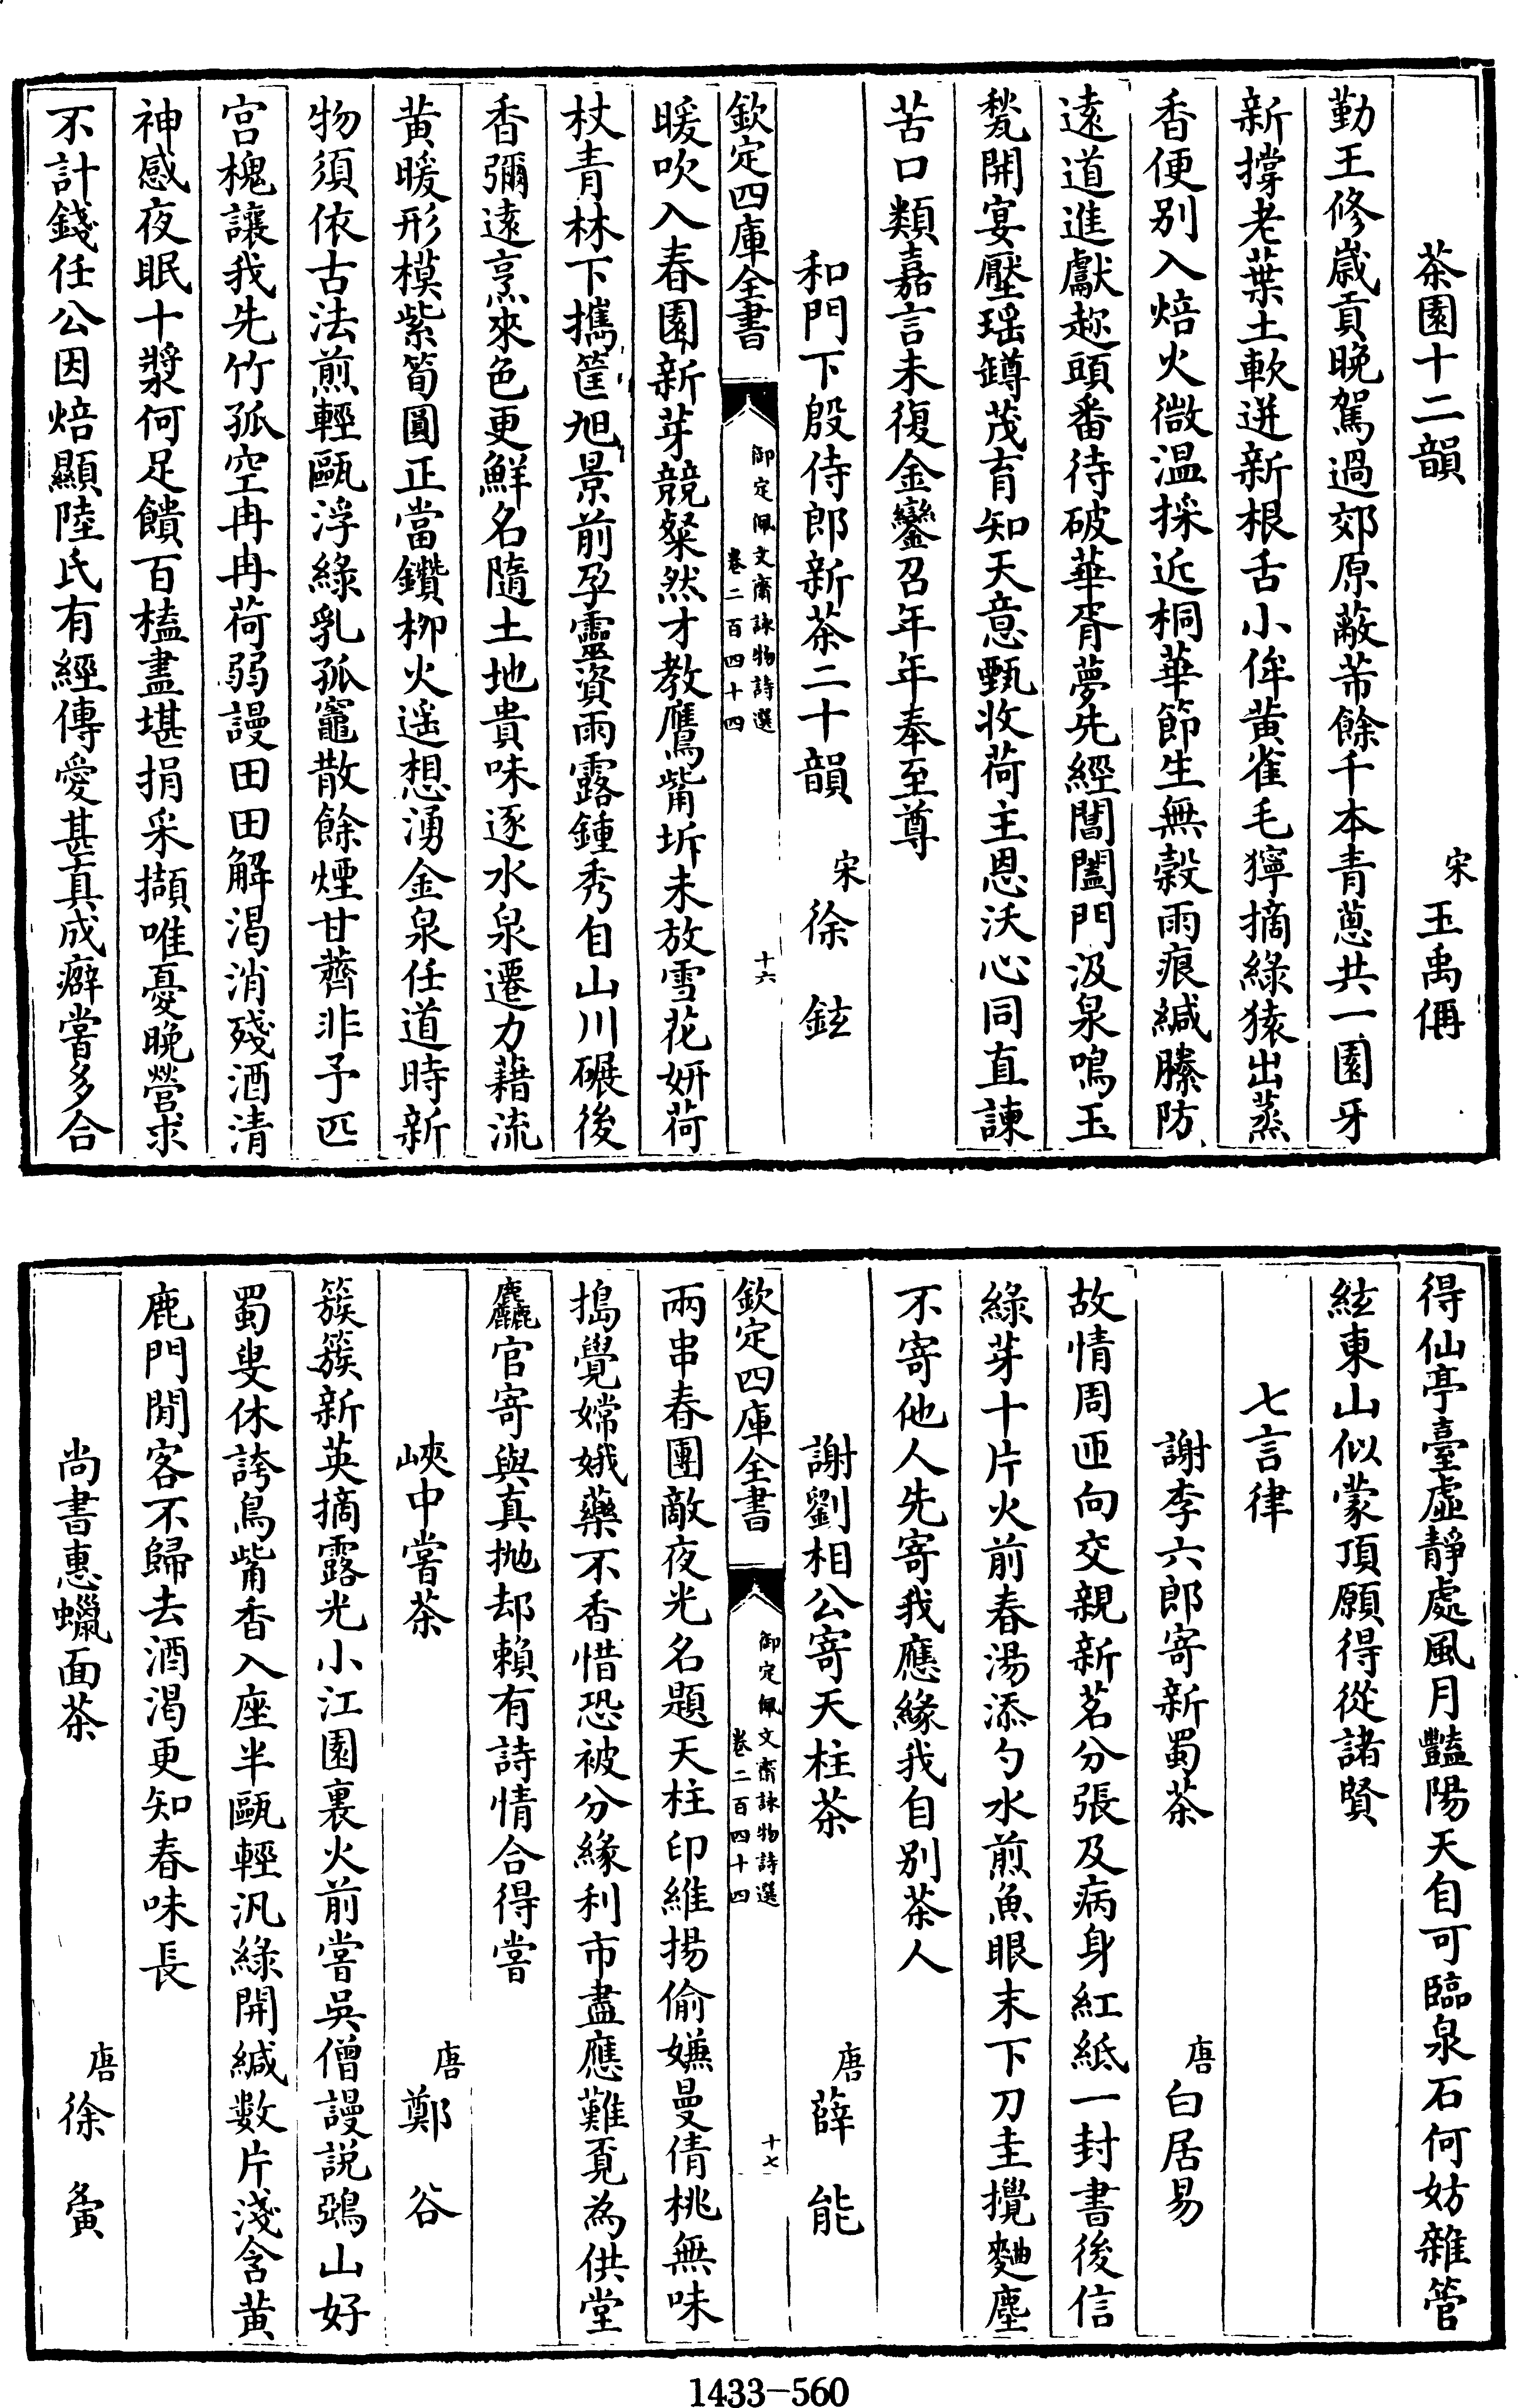 茶園十二韻
宋王禹偁
勤王修歲貢晚駕過郊原蔽芾餘千本青蔥共一園牙
新撑老葉土軟迸新根舌小侔黄雀毛獰摘綠猿出蒸
香便别入焙火微温採近桐華節生無穀雨痕緘縢防
遠道進獻趂頭番待破華胥夢先經閶闔門汲泉鳴玉
甃開宴壓瑶罇茂育知天意甄收荷主恩沃心同直諫
苦口類嘉言未復金鑾召年年奉至尊
和門下殷侍郎新茶二十韻
宋徐鉉
欽定四庫全書
御定佩文齋詠物詩選
卷二百四十四
十六
暖吹入春園新芽競粲然才教鷹觜坼未放雪花妍荷
杖青林下攜筐旭景前孕靈資雨露鍾秀自山川碾後
香彌遠烹來色更鮮名隨土地貴味逐水泉遷力藉流
黄暖形模紫筍圓正當鑽柳火遥想湧金泉任道時新
物須依古法煎輕甌浮綠乳孤竈散餘煙甘薺非予匹
宫槐讓我先竹孤空冉冉荷弱謾田田解渴消殘酒清
神感夜眠十漿何足饋百榼盡堪捐采擷唯憂晚營求
不計錢任公因焙顯陸氏有經傳愛甚真成癖嘗多合
得仙亭臺虛靜處風月豔陽天自可臨泉石何妨雜管
絃東山似蒙頂願得從諸賢
七言律
謝李六郎寄新蜀茶
唐白居易
故情周匝向交親新茗分張及病身紅紙一封書後信
綠芽十片火前春湯添勺水煎魚眼末下刀圭攪麯塵
不寄他人先寄我應緣我自别茶人
謝劉相公寄天柱茶
唐薛能
欽定四庫全書
御定佩文齋詠物詩選
卷二百四十四
十七
兩串春團敵夜光名題天柱印維揚偷嫌曼倩桃無味
搗覺嫦娥藥不香惜恐被分緣利市盡應難覔為供堂
麤官寄與真抛却賴有詩情合得嘗
峽中嘗茶
唐鄭谷
簇簇新英摘露光小江園裏火前嘗吳僧謾説鵶山好
蜀叟休誇鳥觜香入座半甌輕汎綠開緘數片淺含黄
鹿門閒客不歸去酒渴更知春味長
尚書惠蠟面茶
唐徐夤
1433-560